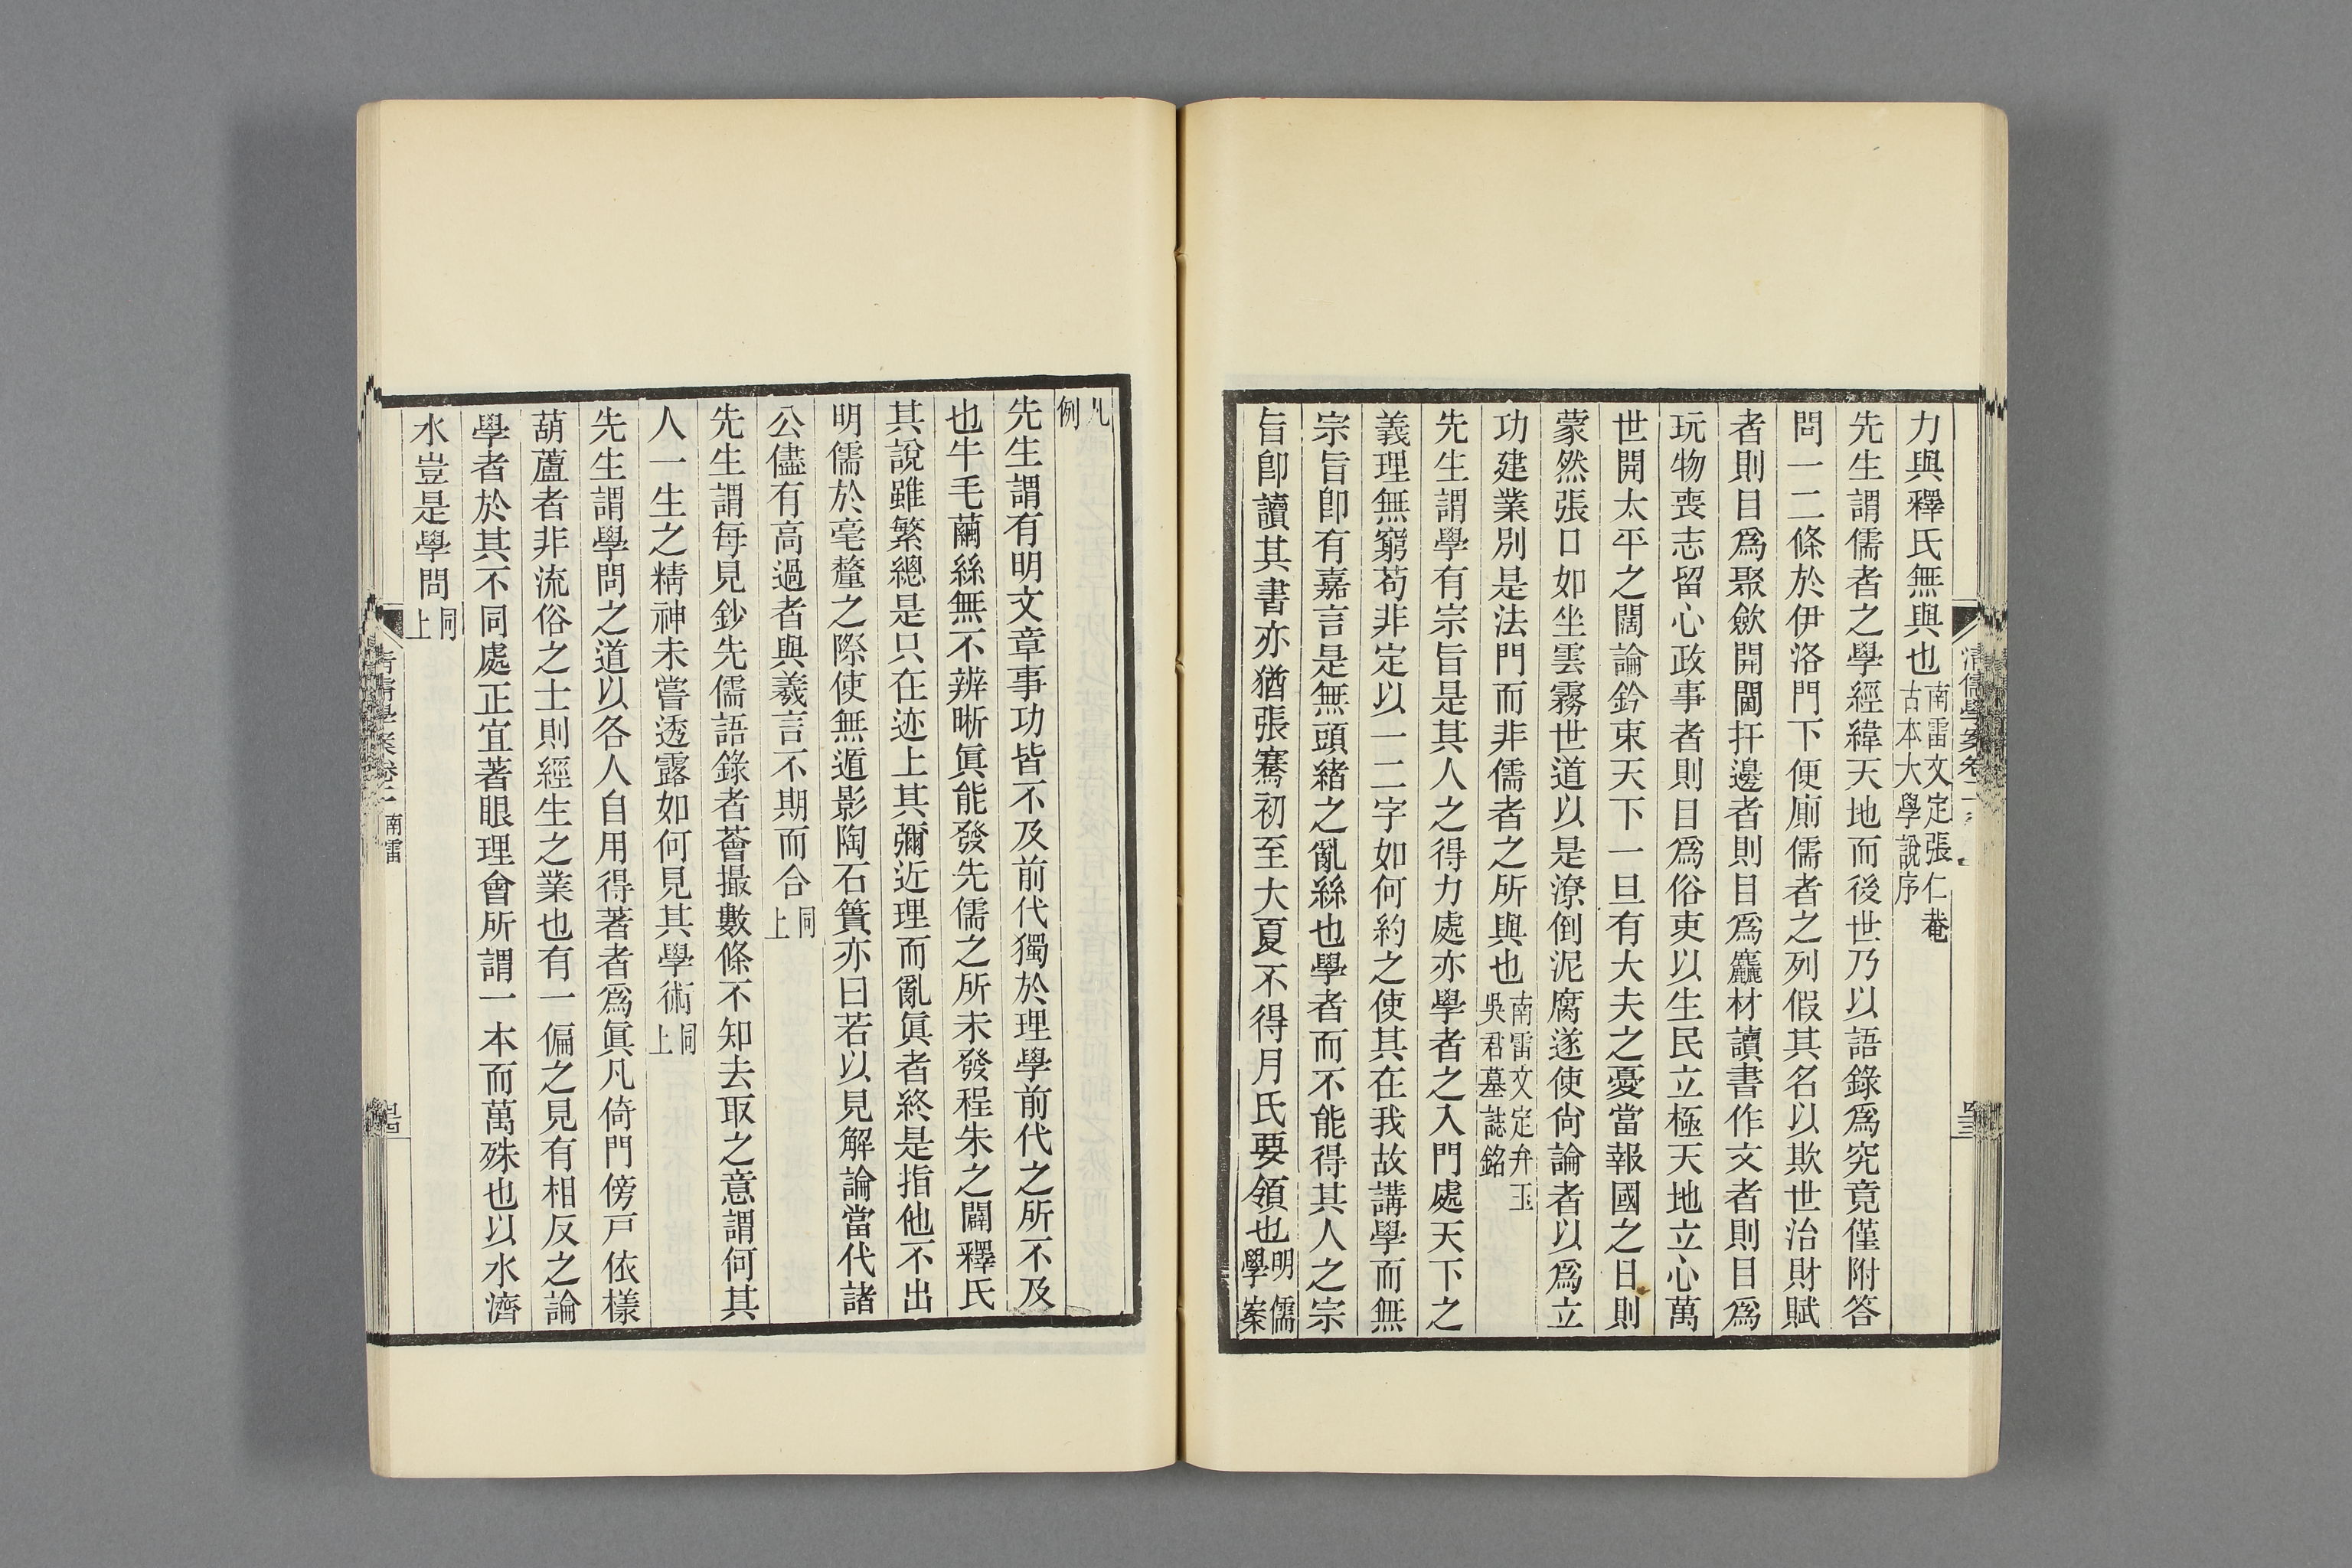 力與釋氏無與也南雷文定張仁菴古本大學說序
先生謂儒者之學經緯天地而後世乃以語錄爲究竟僅附答
問一二條於伊洛門下便廁儒者之列假其名以欺世治財賦
者則目爲聚斂開閫扞邊者則目爲麤材讀書作文者則目爲
玩物喪志留心政事者則目爲俗吏以生民立極天地立心萬
世開太平之闊論鈐束天下一旦有大夫之憂當報國之日則
蒙然張口如坐雲霧世道以是潦倒泥腐遂使尙論者以爲立
功建業別是法門而非儒者之所與也南雷文定弁玉吳君墓誌銘
先生謂學有宗旨是其人之得力處亦學者之入門處天下之
義理無窮苟非定以一二字如何約之使其在我故講學而無
宗旨卽有嘉言是無頭緒之亂絲也學者而不能得其人之宗
旨卽讀其書亦猶張騫初至大夏不得月氏要領也明儒學案
凡例
先生謂有明文章事功皆不及前代獨於理學前代之所不及
也牛毛繭絲無不辨晰眞能發先儒之所未發程朱之闢釋氏
其說雖繁總是只在迹上其彌近理而亂眞者終是指他不出
明儒於毫釐之際使無遁影陶石簣亦曰若以見解論當代諸
公儘有高過者與羲言不期而合同上
先生謂每見鈔先儒語錄者薈撮數條不知去取之意謂何其
人一生之精神未嘗透露如何見其學術同上
先生謂學問之道以各人自用得著者爲眞凡倚門傍戶依樣
葫蘆者非流俗之士則經生之業也有一偏之見有相反之論
學者於其不同處正宜著眼理會所謂一本而萬殊也以水濟
水豈是學問同上
南雷